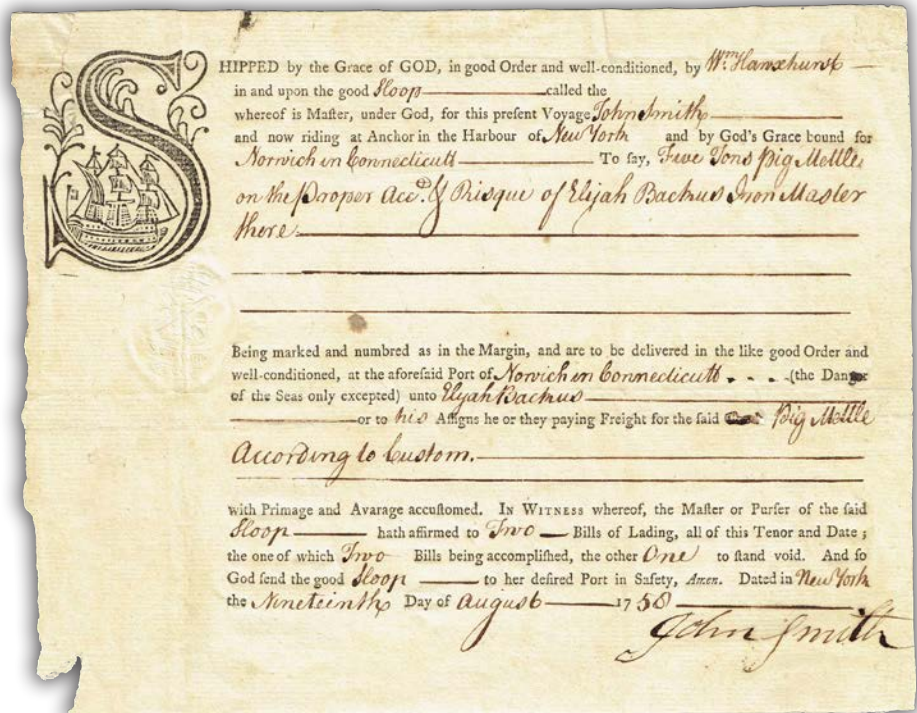 SHIPPED by the Grace of GOD, in good Order and well-conditioned, by Wm. Hawxhurst
in and upon the good Sloop called the
whereof is Maſter, under God, for this preſent Voyage John Smith
and now riding at Anchor in the Harbour of New York and by God's Grace bound for
Norwich in Connecticutt To ſay, Five Tons Pig Mettle
on the Proper Acct. & Risque of Elijah Backus Iron Master
there.
Being marked and numbred as in the Margin, and are to be delivered in the like good Order and
well-conditioned, at the aforeſaid Port of Norwich in Connecticutt - - - (the Danger
of the Seas only excepted) unto Elijah Backus
or to his Aſſigns he or they paying Freight for the ſaid Pig Mettle
According to Custom.
with Primage and Avarage accuſtomed. IN WITNESS whereof, the Maſter or Purſer of the ſaid
Sloop hath affirmed to Two Bills of Lading, all of this Tenor and Date;
the one of which Two Bills being accompliſhed, the other One to ſtand void. And ſo
God ſend the good Sloop to her deſired Port in Safety, Amen. Dated in New York
the Nineteinth Day of August 1758
John Smith